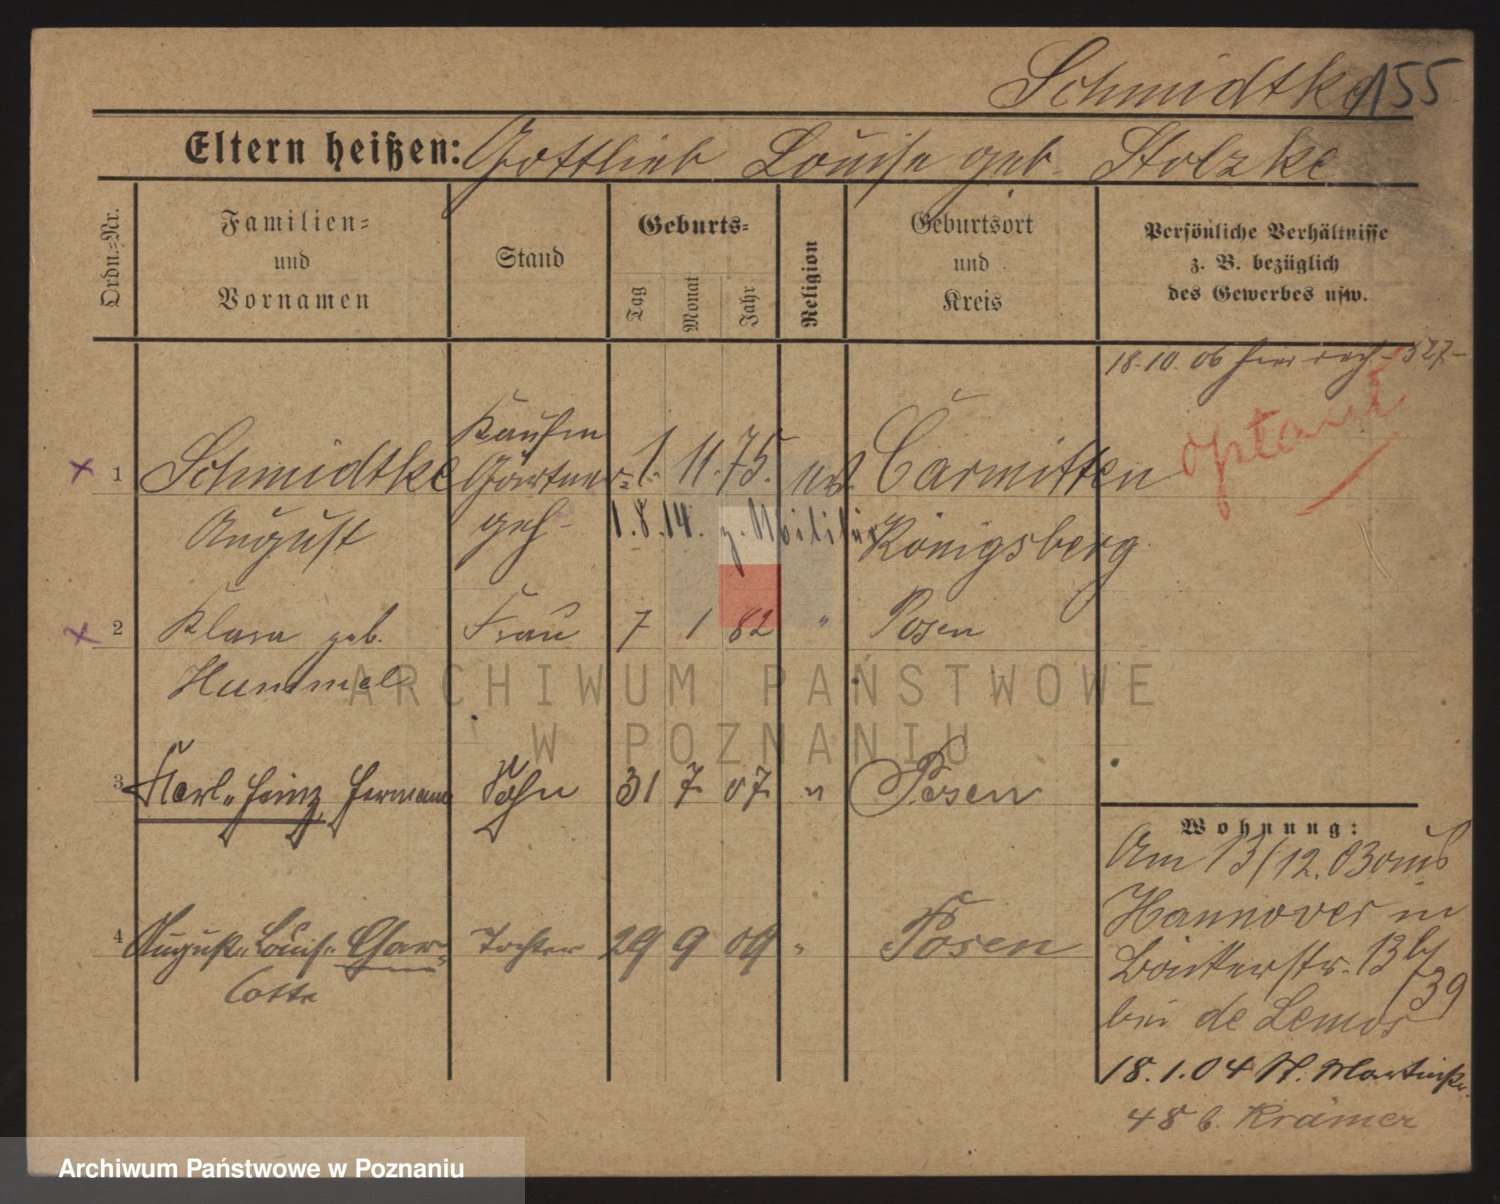 Schmidtke 155
Eltern heißen: Gottlieb Louise geb. Stolzke
Ordn.-Nr.
Familien-
und
Vornamen
Stand
Geburts-
Tag
Monat
Jahr
Religion
Geburtsort
und
Kreis
Persönliche Verhältnisse
z. B. bezüglich
des Gewerbes usw.
18.10.06
optant
Kaufm
1 Schmidtke Gärtner- 1. 11. 75. Carmitten
August geh- 1.8.14. z. Militär Königsberg
2 Klara geb. Frau 7 1 82 " Posen
Hummel
3 Karl-Heinz Hermann Sohn 31 7 07 " Posen
4 August. Louis. Char- Tochter 29 9 09 " Posen
lotte
Wohnung:
Am 13/12.03 aus
Hannover in
13
bei de Lemos 39
18.1.04 St. Martinstr.
48 b. Krämer
ARCHIWUM PAŃSTWOWE
W POZNANIU
Archiwum Państwowe w Poznaniu